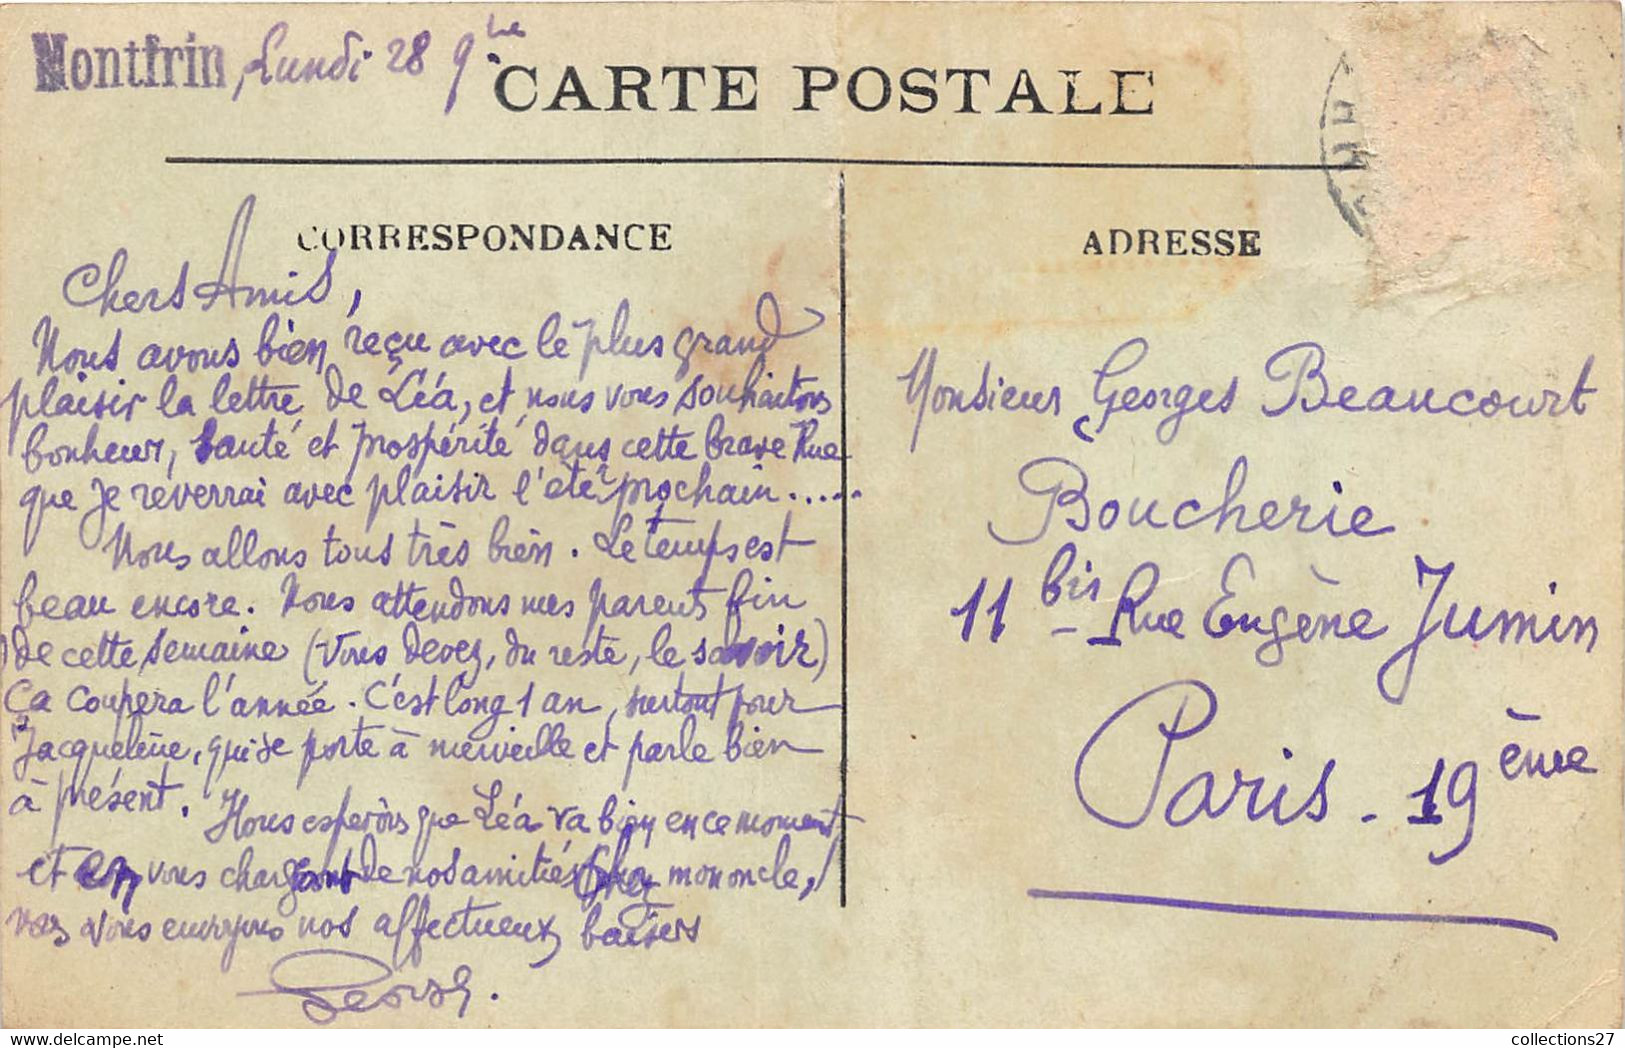 Montfrin, Lundi 28 9bre
CARTE POSTALE
CORRESPONDANCE
Chers Amis,
Nous avons bien reçu avec le plus grand
plaisir la lettre de Léa, et nous vous souhaitons
bonheur, santé et prospérité dans cette brave Rue
que je reverrai avec plaisir l'été prochain.....
Nous allons tous très bien. Le temps est
beau encore. Nous attendons mes parents fin
de cette semaine (vous devez, du reste, le savoir)
Ça coupera l'année. C'est long 1 an, surtout pour
Jacqueline, qui se porte à merveille et parle bien
à présent. Nous espérons que Léa va bien en ce moment
et en vous chargeant de nos amitiés chez mon oncle,
vous envoyons nos affectueux baisers
ADRESSE
Monsieur Georges Beaucourt
Boucherie
11 bis Rue Eugène Jumin
Paris - 19ème
collections27